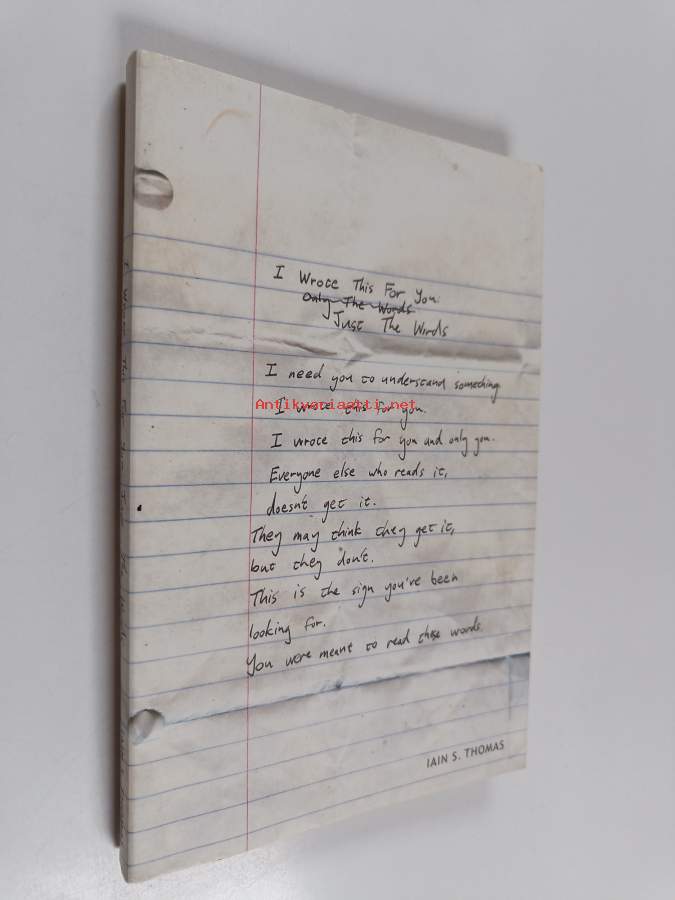 I Wrote This For You
Only The Words
Just The Words
I need you to understand something.
I wrote this for you.
I wrote this for you and only you.
Everyone else who reads it,
doesn't get it.
They may think they get it,
but they don't.
This is the sign you've been
looking for.
You were meant to read these words.
IAIN S. THOMAS
Antikvariaatti.net